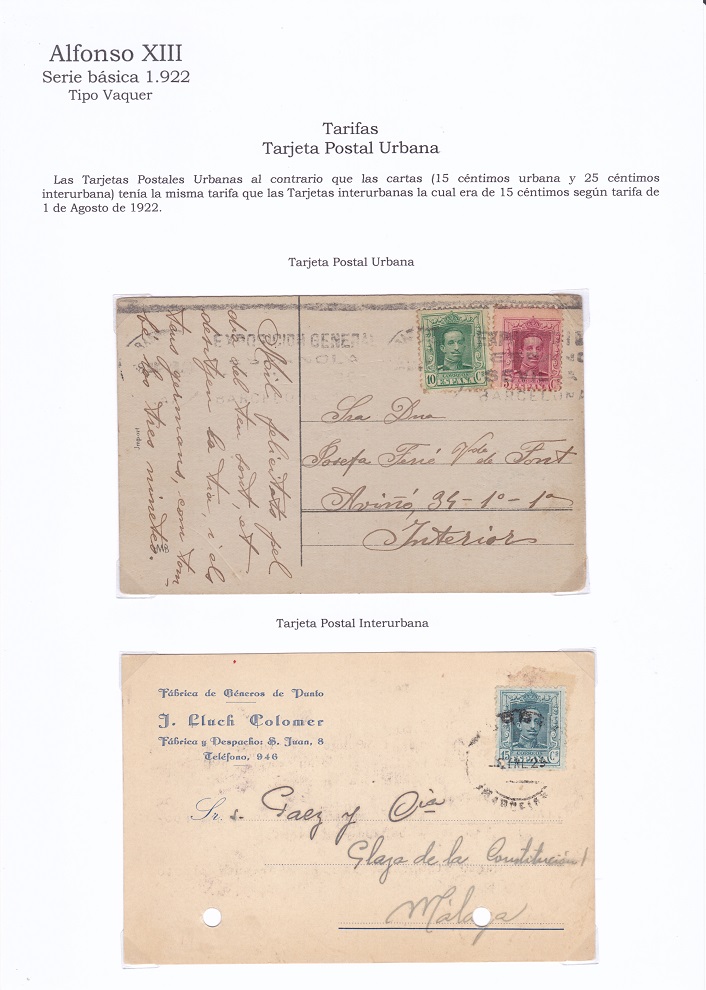 Alfonso XIII
Serie básica 1.922
Tipo Vaquer
Tarifas
Tarjeta Postal Urbana
Las Tarjetas Postales Urbanas al contrario que las cartas (15 céntimos urbana y 25 céntimos
interurbana) tenía la misma tarifa que las Tarjetas interurbanas la cual era de 15 céntimos según tarifa de
1 de Agosto de 1922.
Tarjeta Postal Urbana
EXPOSICION GENERAL
BARCELONA
10 Cs
ESPAÑA
Moil felicitats pel
dia del teu sant, et
desitjen la tia, i els
teus germans, com tam
bé las tres ninetes.
Sra Dna
Josefa Ferié Vda de Font
Aviñó, 34-1º-1ª
Interior
Tarjeta Postal Interurbana
Fábrica de Géneros de Punto
J. Lluch Colomer
Fábrica y Despacho: S. Juan, 8
Teléfono, 946
15 Cs
ENE 25
Sr. s.
Gaez y Cia
Plaza de la Constitución 1
Málaga